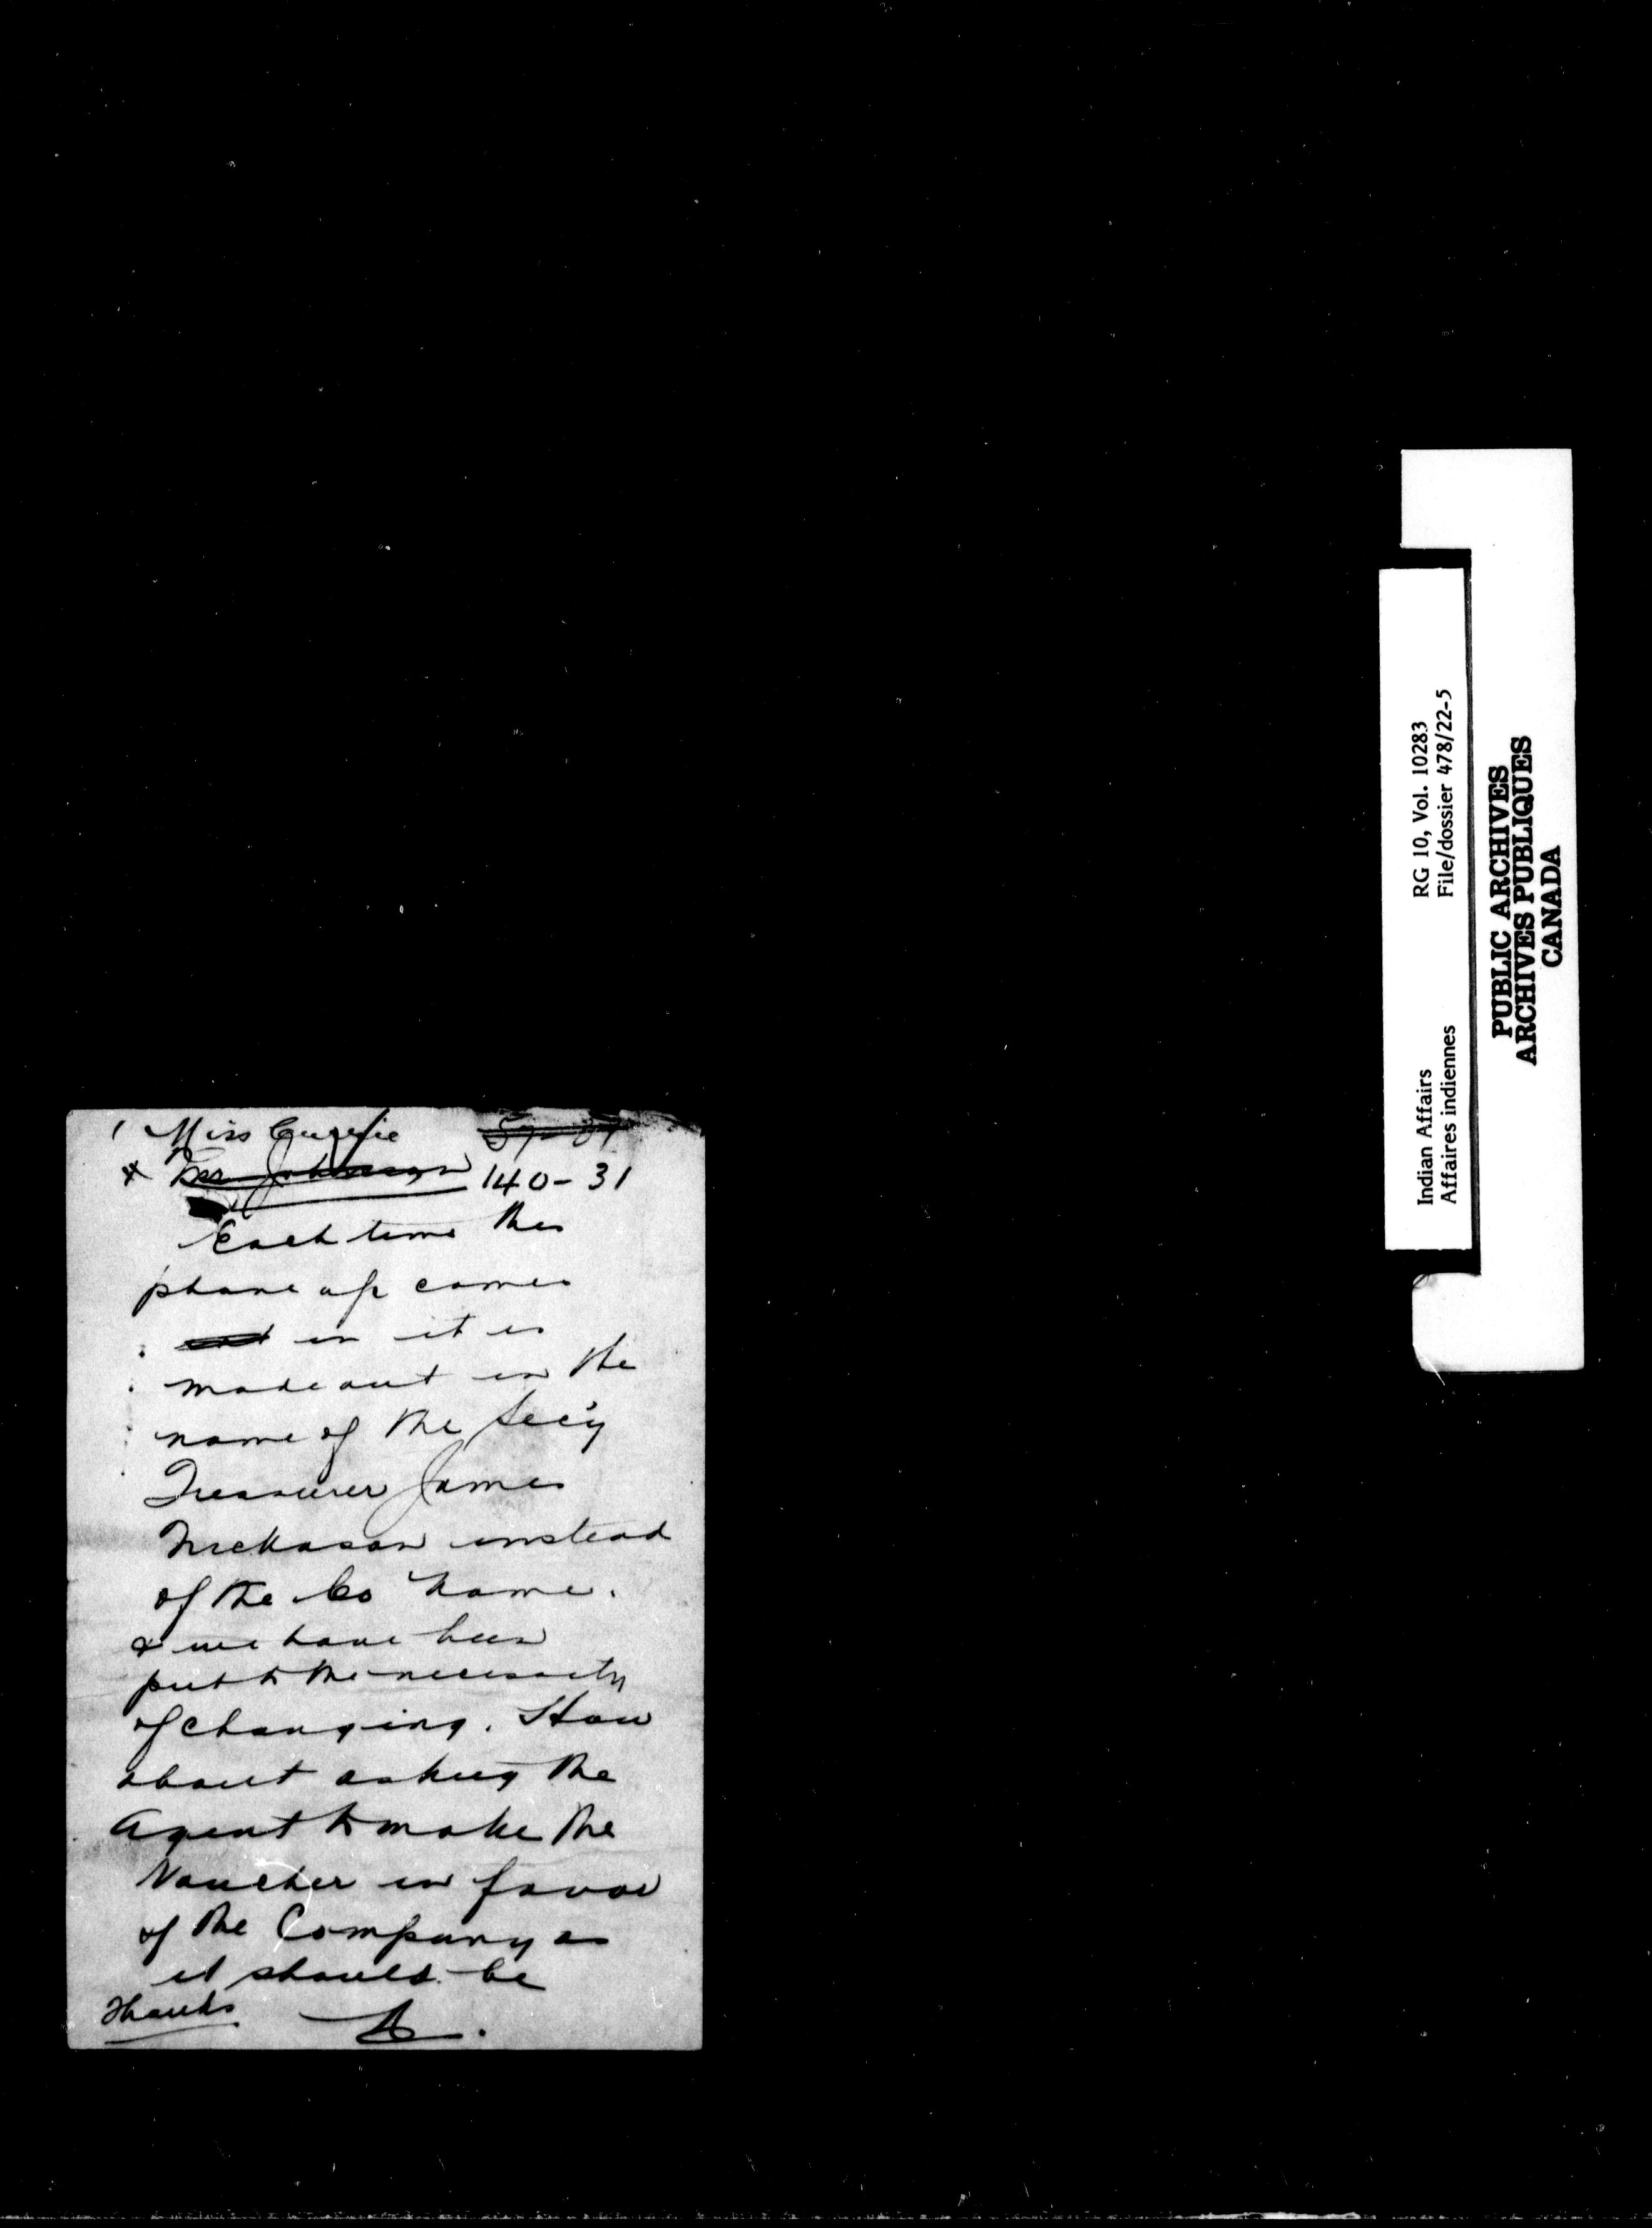 Miss
140-31
Each time this
phone a/c comes
in it is
made out in the
name of the Sec'y
Treasurer James
instead
of the Co name.
& we have been
put to the necessity
of changing. How
about asking the
Agent to make the
Voucher in favor
of the Company as
it should be
Thanks
Indian Affairs RG 10, Vol. 10283
Affaires indiennes File/dossier 478/22-5
PUBLIC ARCHIVES
ARCHIVES PUBLIQUES
CANADA